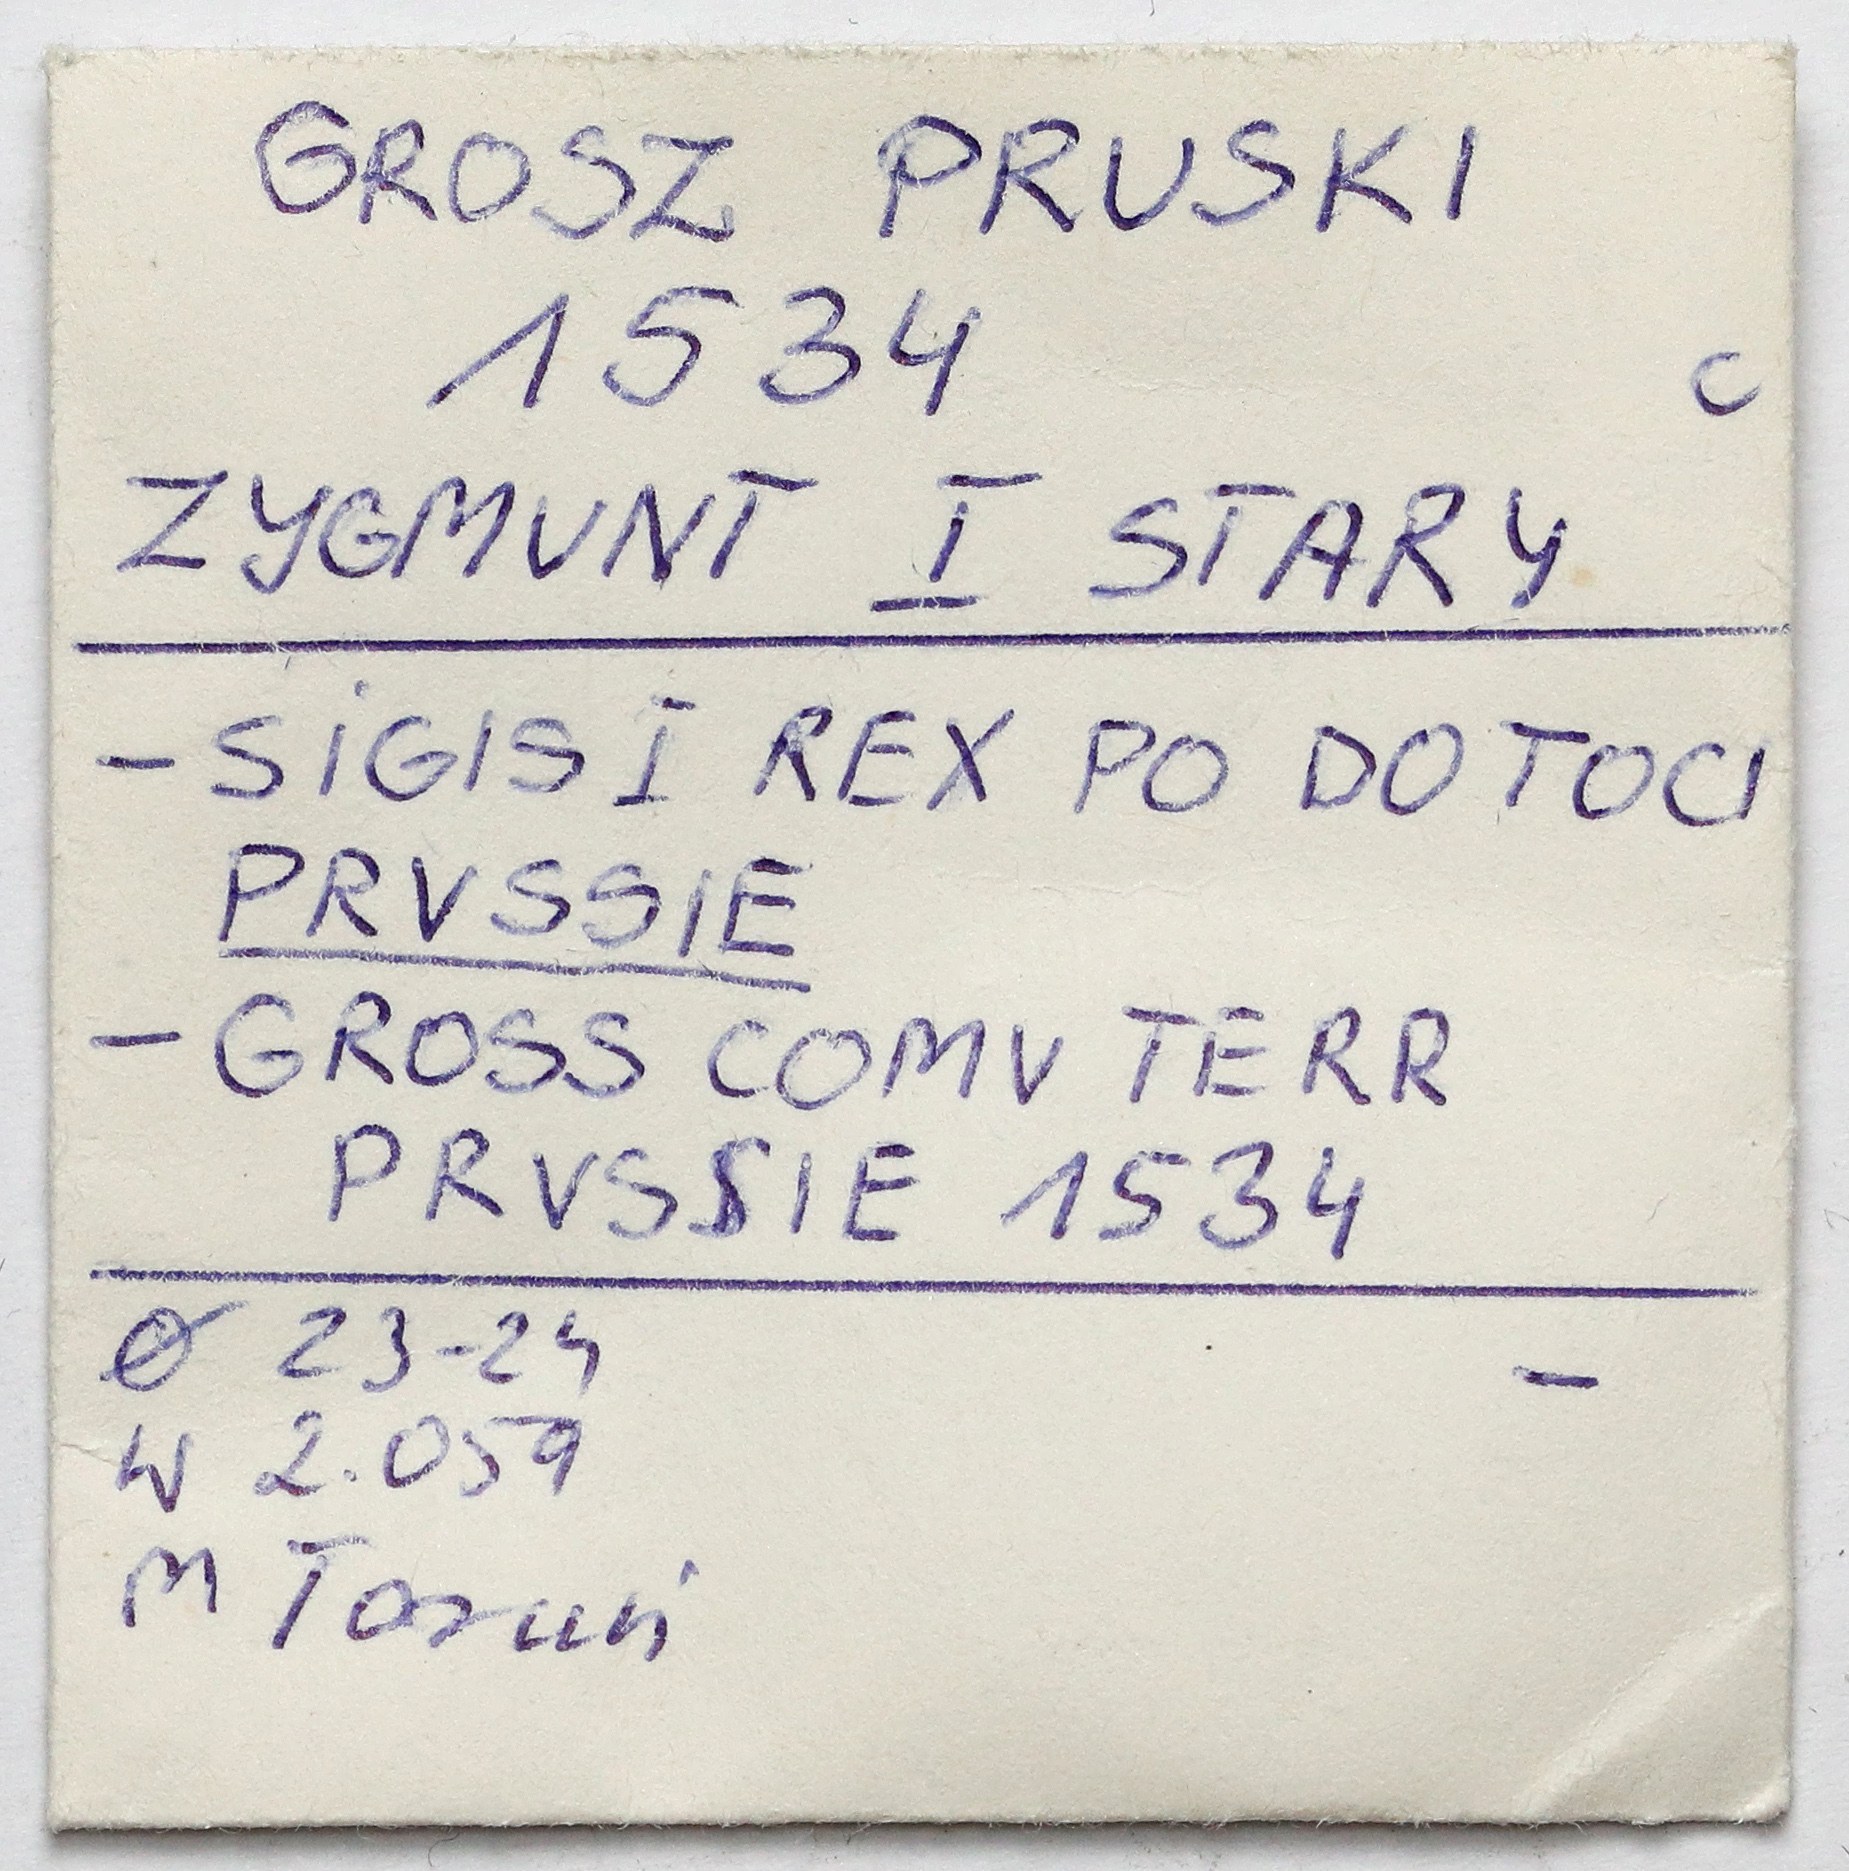 GROSZ PRUSKI
1534
C
ZYGMUNT I STARY
- SIGIS I REX PO DO TOCI
PRVSSIE
- GROSS COMV TERR
PRVSSIE 1534
Ø 23-24 -
W 2.059
M Toruń